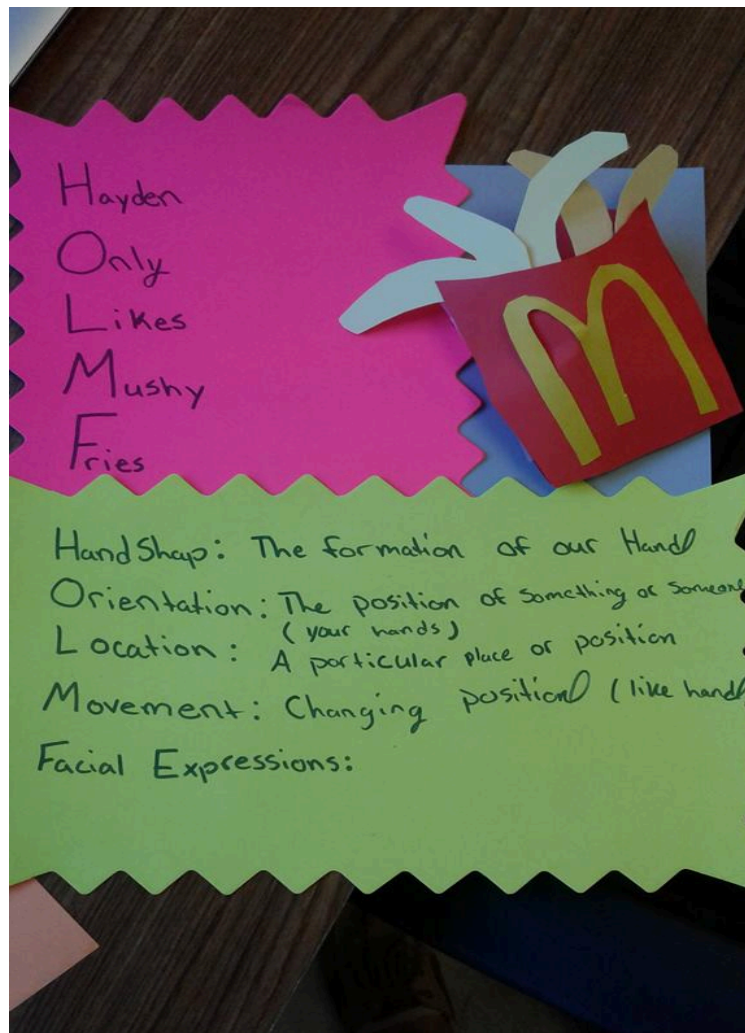 Hayden
Only
Likes
Mushy
Fries
M
HandShap: The formation of our Hand
Orientation: The position of something or someone
(your hands)
Location: A particular place or position
Movement: Changing position (like hand
Facial Expressions: